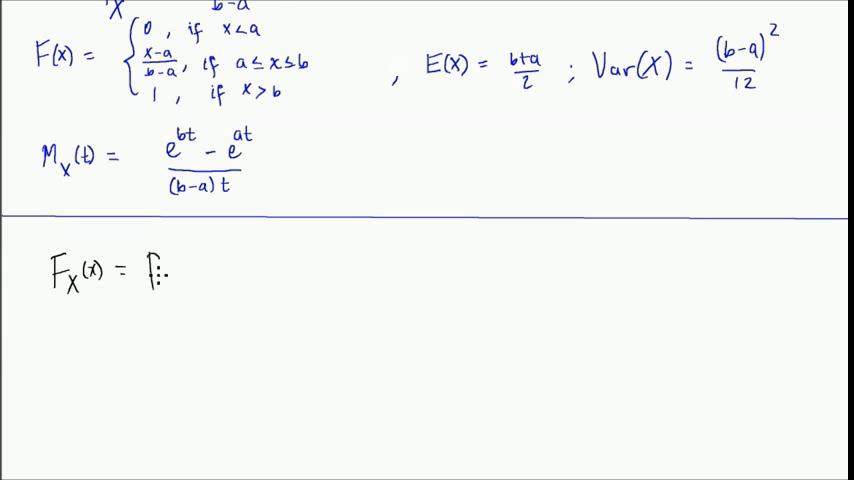 X b-a
F(x) = { 0 , if x<a
x-a/b-a , if a≤x≤b
1 , if x>b
, E(X) = b+a/2 ; Var(X) = (b-a)²/12
M_X(t) = e^bt - e^at / (b-a)t
F_X(x) =